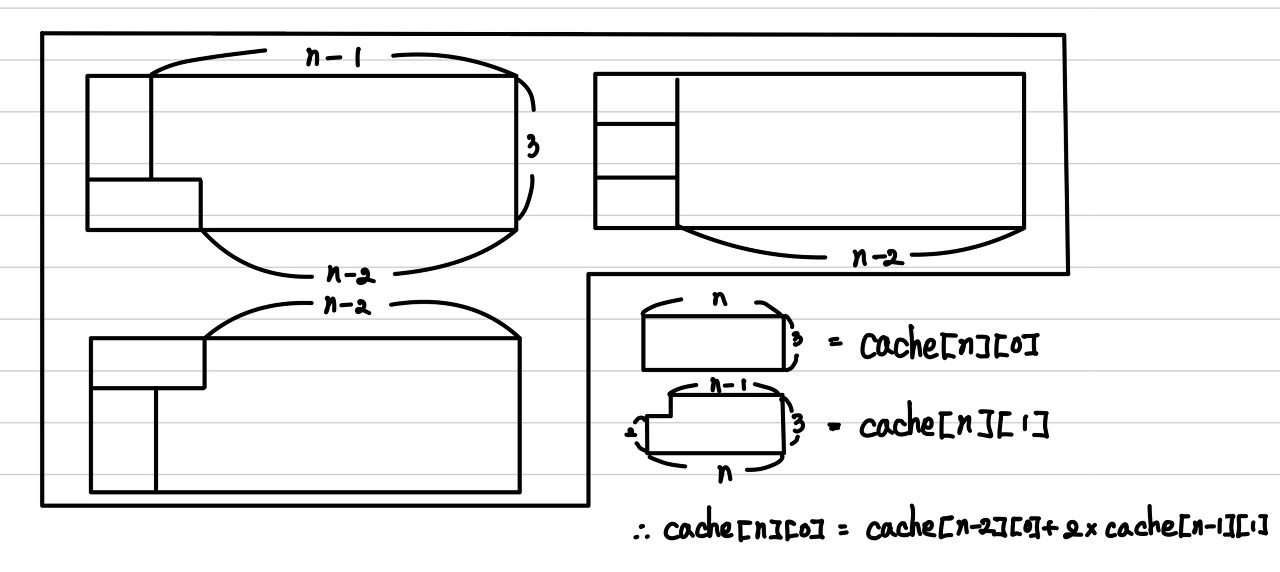 n-1
3
n-2
n-2
n-2
n
3 = cache[n][0]
n-1
2
3 = cache[n][1]
n
∴ cache[n][0] = cache[n-2][0]+2×cache[n-1][1]